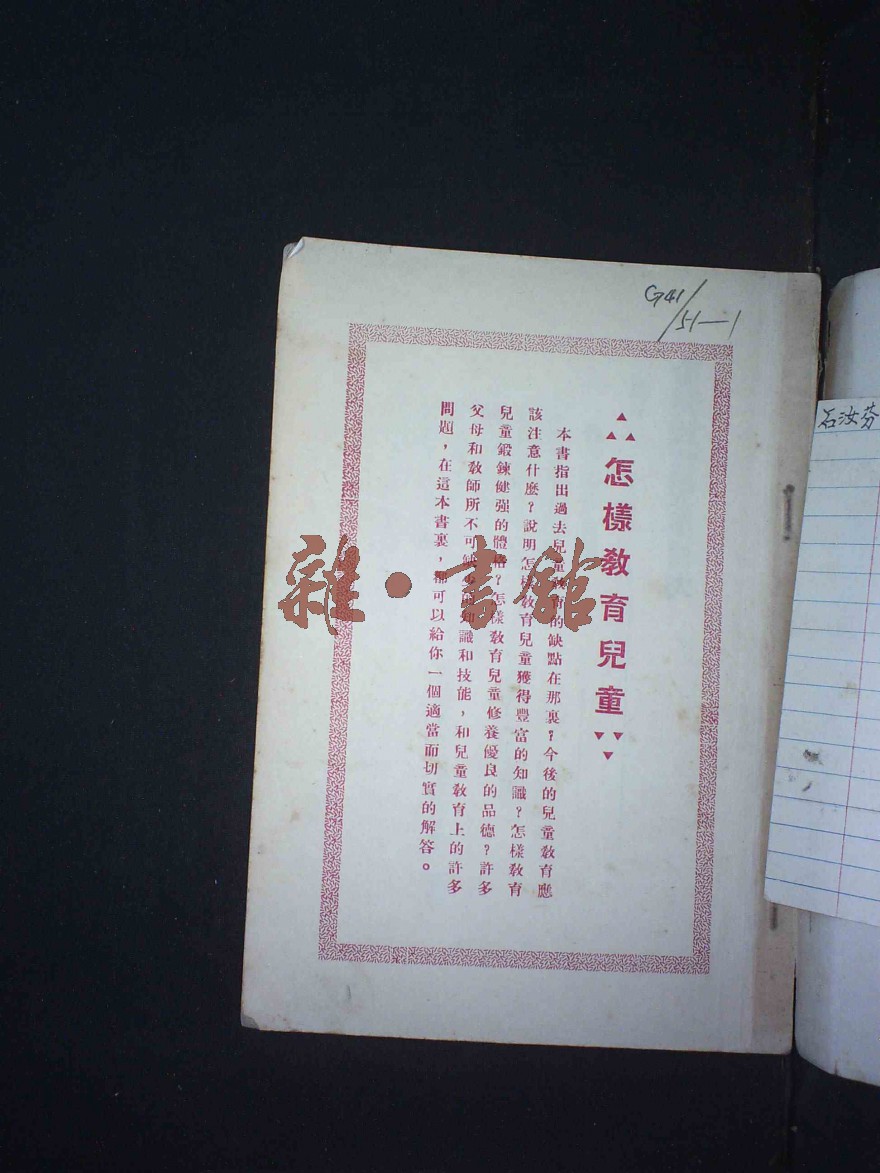 G41/51—1
怎樣敎育兒童
本書指出過去兒童敎育的缺點在那裏？今後的兒童敎育應
該注意什麽？說明怎樣敎育兒童獲得豐富的知識？怎樣敎育
兒童鍛鍊健强的體格？怎樣敎育兒童修養優良的品德？許多
父母和敎師所不可缺少的知識和技能，和兒童敎育上的許多
問題，在這本書裏，都可以給你一個適當而切實的解答。
雜·書館
石汝芬